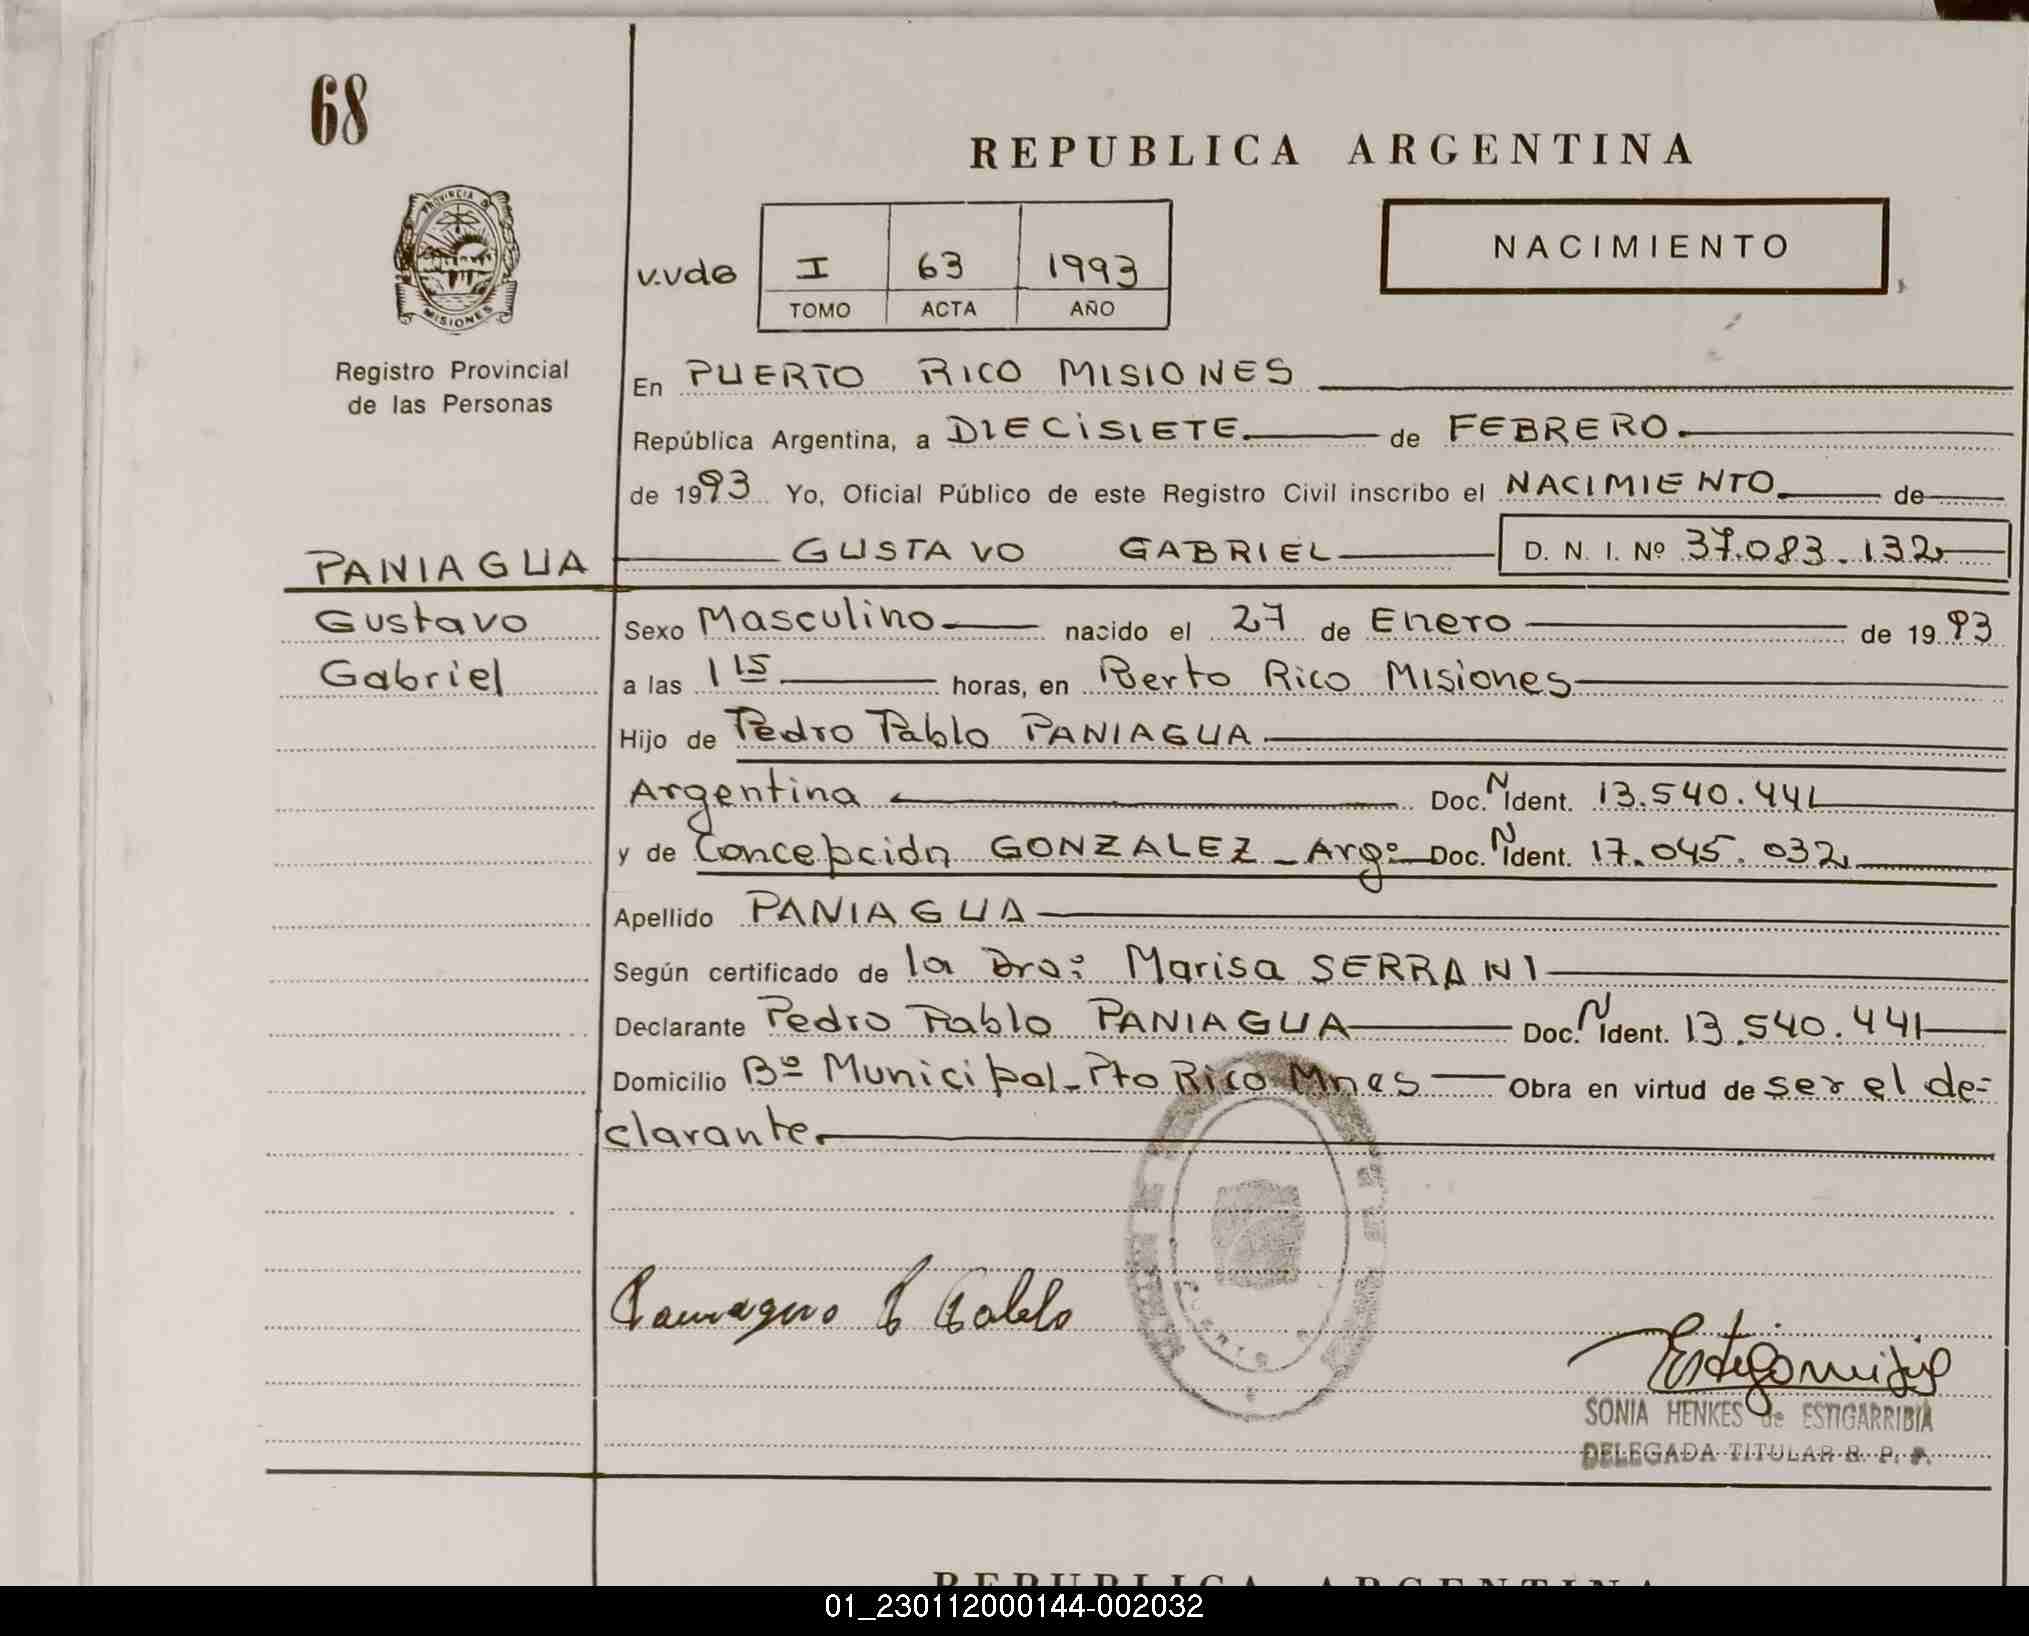 68
REPUBLICA ARGENTINA
NACIMIENTO
v.vde I 63 1993
TOMO ACTA AÑO
PROVINCIA D
MISIONES
Registro Provincial
de las Personas
En PUERTO RICO MISIONES
República Argentina, a DIECISIETE. de FEBRERO.
de 1993 Yo, Oficial Público de este Registro Civil inscribo el NACIMIENTO de
PANIAGUA GUSTAVO GABRIEL D. N. I. Nº 37.083.132
Gustavo Sexo Masculino nacido el 27 de Enero de 1993
Gabriel a las 1 15 horas, en Puerto Rico Misiones
Hijo de Pedro Pablo PANIAGUA.
Argentina Doc. N Ident. 13.540.441
y de Concepción GONZALEZ - Argº Doc. N Ident. 17.045.032
Apellido PANIAGUA
Según certificado de la Dra: Marisa SERRANI
Declarante Pedro Pablo PANIAGUA Doc. N Ident. 13.540.441
Domicilio Bº Municipal - Pto Rico Mnes Obra en virtud de ser el de=
clarante.
SONIA HENKES de ESTIGARRIBIA
DELEGADA TITULAR R. P. P.
REPUBLICA ARGENTINA
01_230112000144-002032